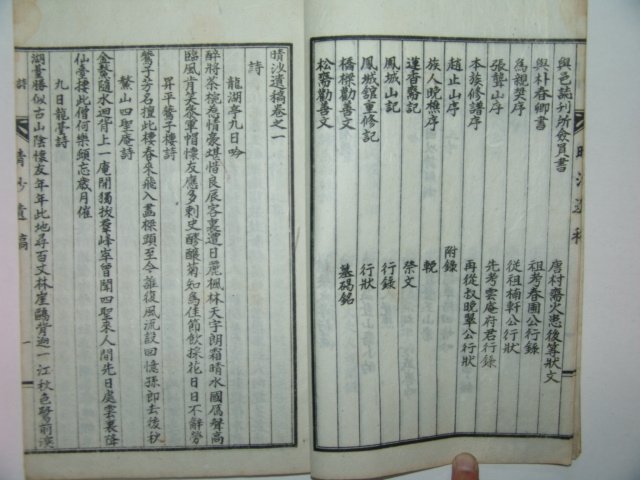 與邑誌刊所僉員書
與朴春卿書
為親契序
張鷰山序
本族修譜序
趙止山序
族人晚樵序
蓮香齋記
鳳城山記
鳳城館重修記
橋樑勸善文
松齋勸善文
唐村齋火慝後等狀文
祖考春圃公行錄
從祖楠軒公行狀
先考雲庵府君行錄
再從叔晚翠公行狀
附錄
輓
祭文
行錄
行狀
墓碣銘
晴沙遺稿卷之一
詩
龍湖亭九日吟
醉將茶椀為情豪堪惜良辰客裏遭日麗楓林天宇朗霜晴水國厲聲高
臨風肯笑參軍帽懷友應多刺史醪釀菊知為佳節飲採花日日不辭勞
昇平鷰子樓詩
鷰子芳名擅此樓春來飛入畫樑頭至今誰復風流設回憶孫郎去後秋
鰲山四聖庵詩
金鰲隨水迴背上一庵開獨拔羣峰宰曾聞四聖來人間先日處雲裏降
仙臺接此僧何樂頻忘歲月催
九日龍臺詩
湖臺勝似古山陰懷友年年此地尋百丈林崖鷗背逈一江秋色鷺前深
詩
晴沙遺稿
一